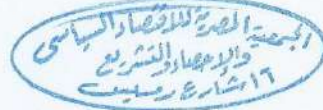 الجمعية المصرية للاقتصاد السياسى
والإحصاء والتشريع
١٦ شارع رمسيس